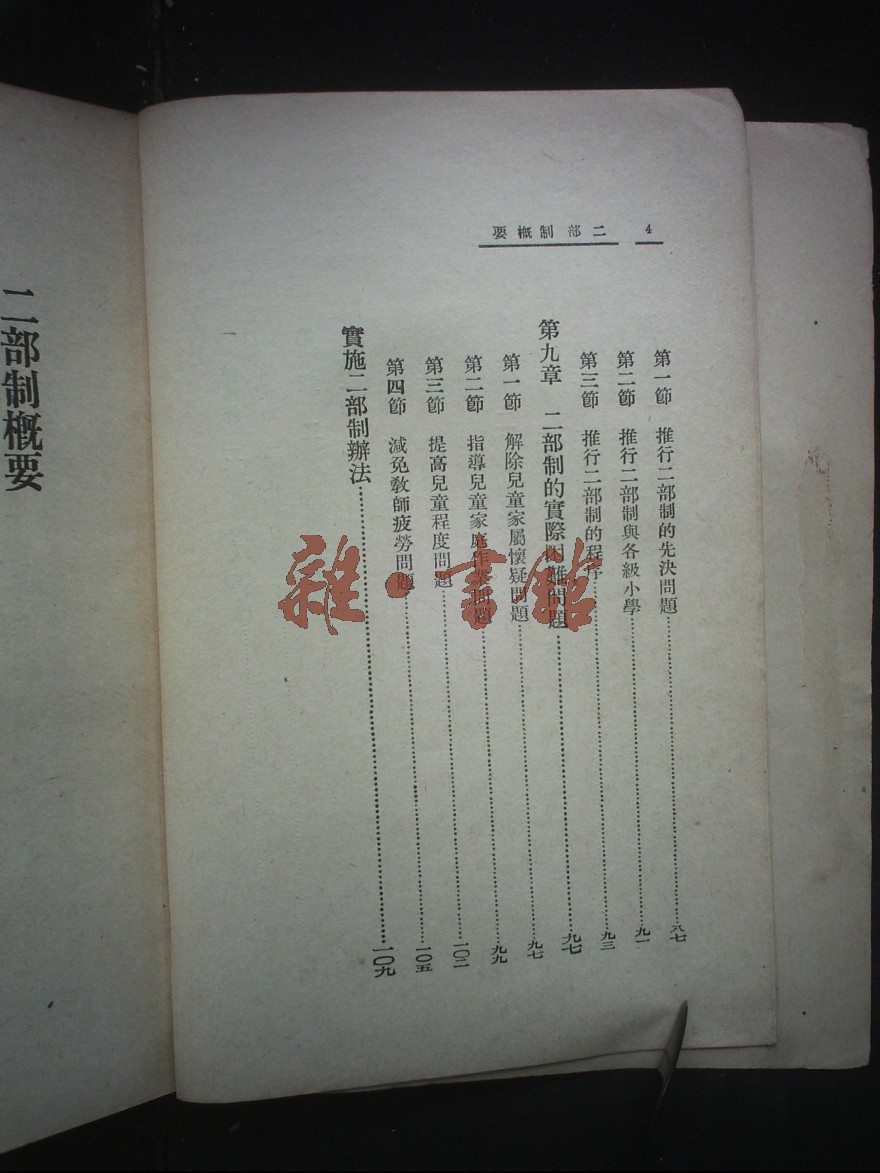 二部制概要 4
第一節 推行二部制的先決問題……八七
第二節 推行二部制與各級小學……九一
第三節 推行二部制的程序……九三
第九章 二部制的實際困難問題……九七
第一節 解除兒童家屬懷疑問題……九七
第二節 指導兒童家庭作業問題……九九
第三節 提高兒童程度問題……一〇二
第四節 減免敎師疲勞問題……一〇五
實施二部制辦法……一〇九
二部制概要
雜·書館